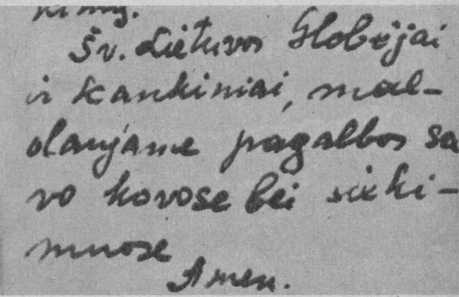 Šv. Lietuvos Globėjai
ir kankiniai, mal-
daujame pagalbos sa
vo kovose bei sieki-
muose
Amen.